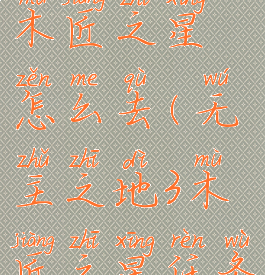 mù jiàng zhī xīng
木匠之星
zěn me qù wú
怎么去(无
zhǔ zhī dì mù
主之地)木
jiàng zhī xīng rèn wù
匠之星任务